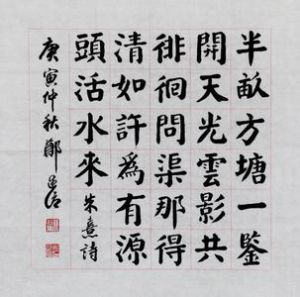 半畝方塘一鑒
開天光雲影共
徘徊問渠那得
清如許為有源
頭活水來朱熹詩
庚寅仲秋鄭